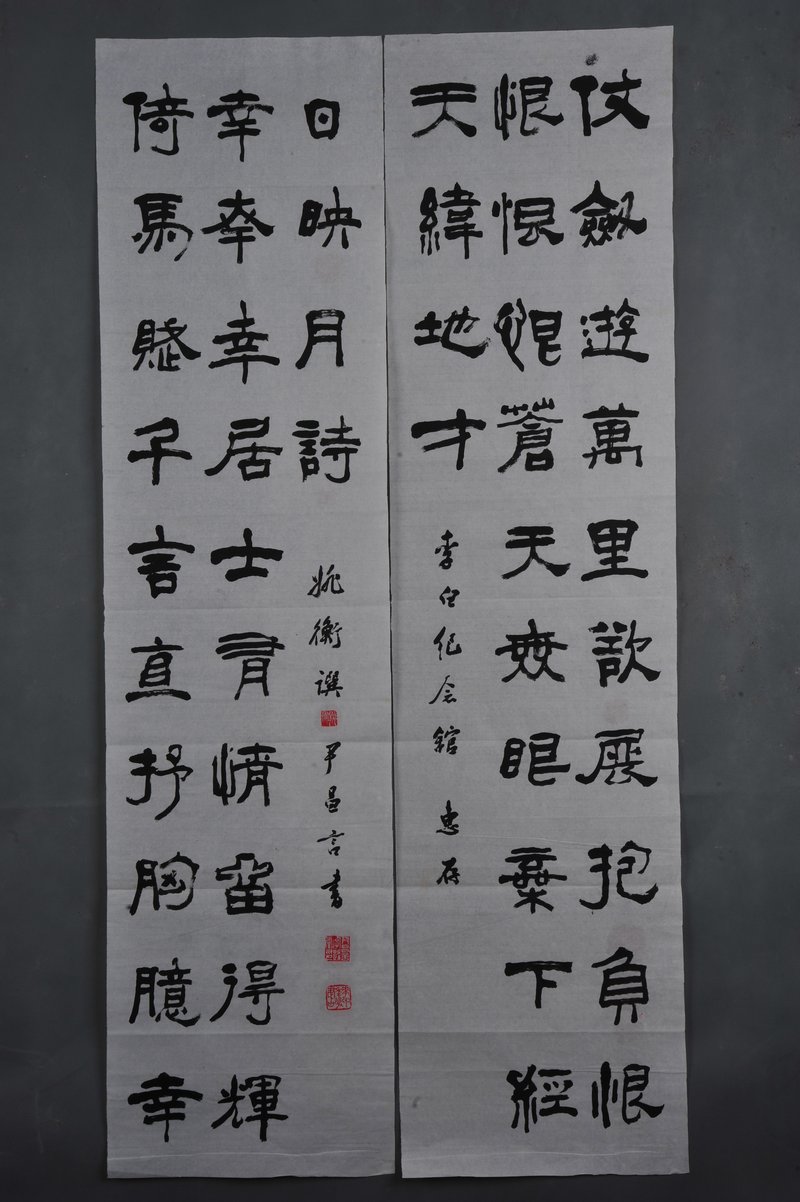 仗劍遊萬里欲展抱負恨
恨恨恨蒼天無眼棄下經
天緯地才
李白纪念舘 惠存
倚馬賦千言直抒胸臆幸
幸幸幸居士有情留得輝
日映月詩
姚衡撰 尹昌言書